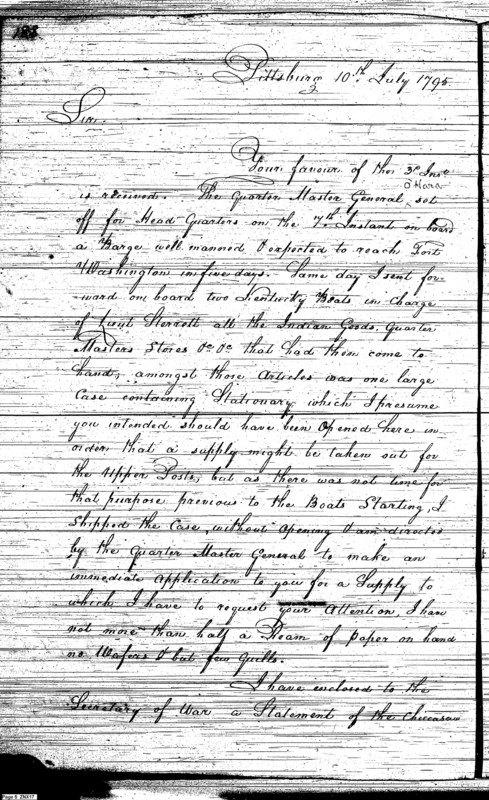 183
Pittsburg 10th July 1795
Sir
Your favour of the 3d Inst
O'Hara
is received. The Quarter Master General, set
off for Head Quarters on the 7th Instant on board
a Barge well manned & expected to reach Fort
Washington in five days. Same day I sent for-
ward on board two Kentucky Boats in charge
of Lieut Sterrett all the Indian Goods. Quarter
Masters Stores &c &c that had then come to
hand; amongst those Articles was one large
Case containing Stationary which I presume
you intended should have been opened here in
order that a supply might be taken out for
the Upper Posts, but as there was not time for
that purpose previous to the Boats Starting, I
Shipped the Case, without opening & am directed
by the Quarter Master General to make an
immediate application to you for a Supply to
which I have to request your Attention, I have
not more than half a Ream of paper on hand
no Wafers & but few quills.
I have enclosed to the
Secretary of War a Statement of the Chicasaw
Page 5 ZNX17